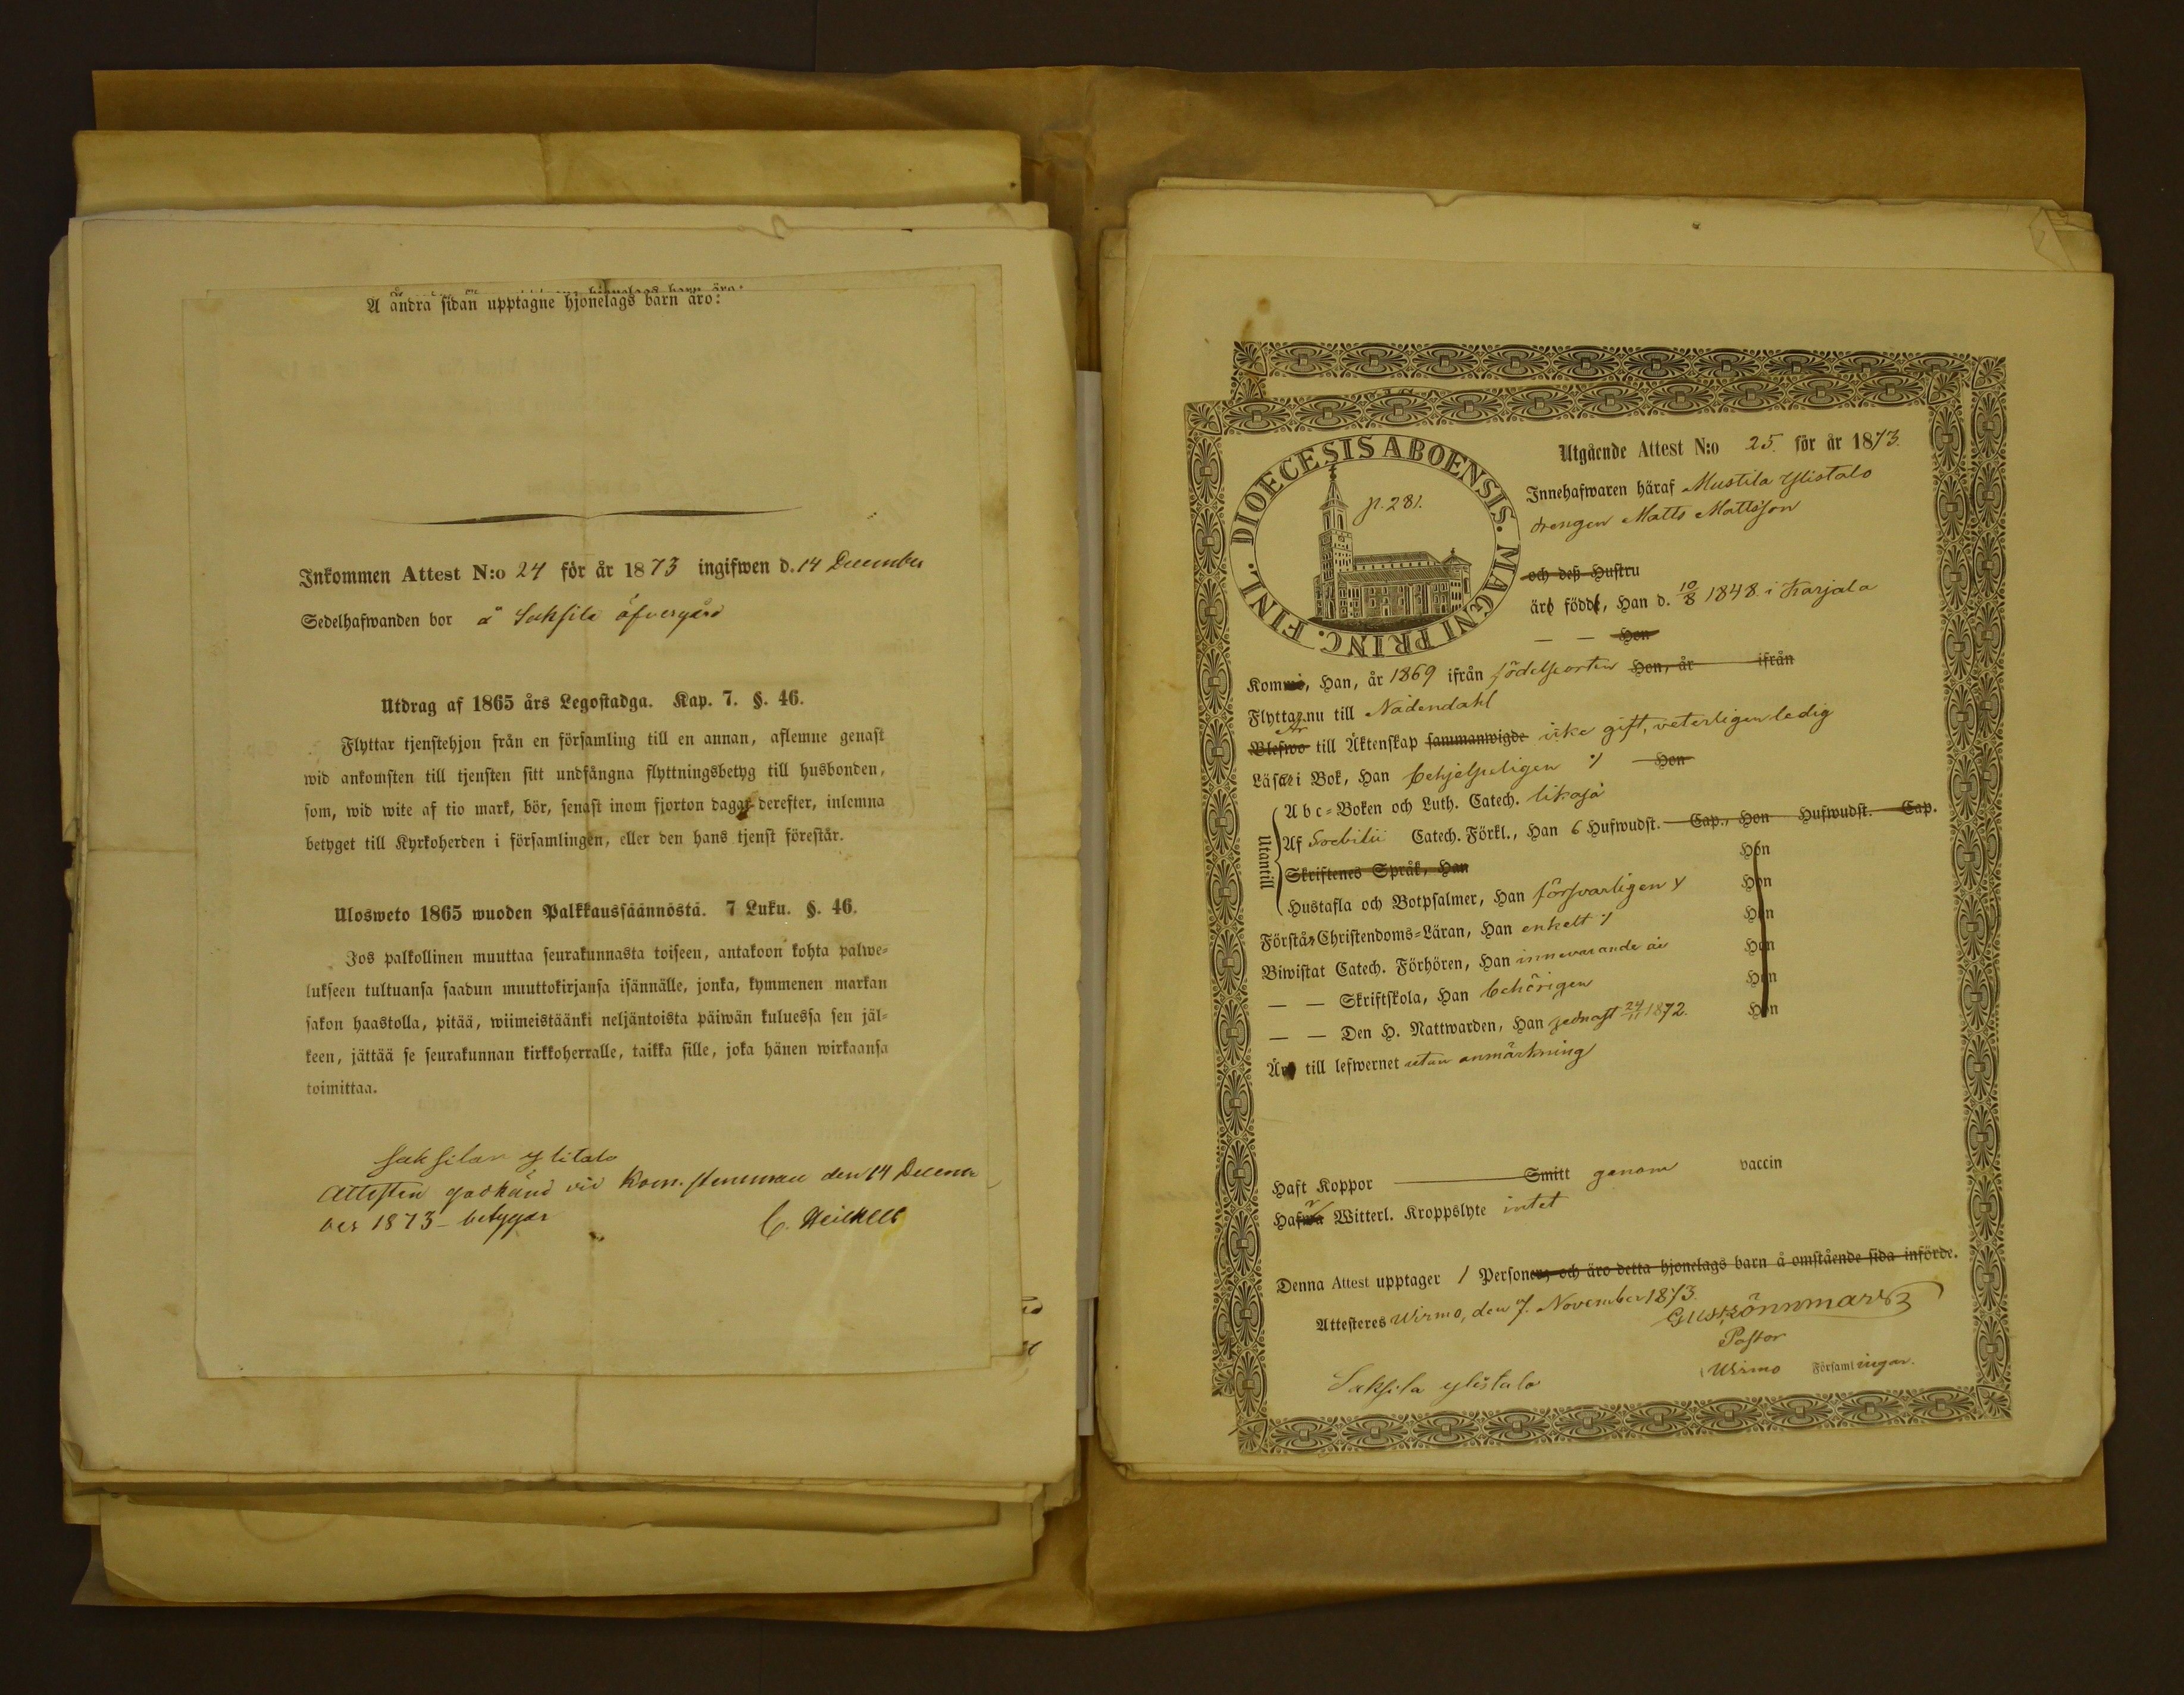 Å andra sidan upptagne hjonelags barn äro:
Inkommen Attest N:o 24 för år 1873 ingifwen d. 14 December
Sedelhafwanden bor å Saksila öfvergård
Utdrag af 1865 års Legostadga. Kap. 7. §. 46.
Flyttar tjenstehjon från en församling till en annan, aflemne genast
wid ankomsten till tjensten sitt undfångna flyttningsbetyg till husbonden,
som, wid wite af tio mark, bör, senast inom fjorton dagar derefter, inlemna
betyget till Kyrkoherden i församlingen, eller den hans tjenst förestår.
Ulosweto 1865 wuoden Palkkaussäännöstä. 7 Luku. §. 46.
Jos palkollinen muuttaa seurakunnasta toiseen, antakoon kohta palwe-
lukseen tultuansa saadun muuttokirjansa isännälle, jonka, kymmenen markan
sakon haastolla, pitää, wiimeistäänki neljäntoista päiwän kuluessa sen jäl-
keen, jättää se seurakunnan kirkkoherralle, taikka sille, joka hänen wirkaansa
toimittaa.
Saksilan ylitalo
Attesten godkänd vid Kom. stämman den 14 Decem
ber 1873 - betygar C. Heikell
DIOECESIS ABOENSIS. MAGNI PRINC. FINL.
p. 281.
Utgående Attest N:o 25. för år 1873.
Innehafwaren häraf Mustila Ylistalo
drengen Matts Mattsson
och deß Hustru
äro födde, Han d. 10/8 1848 i Karjala
— — Hon
Komne, Han, år 1869 ifrån födelseorten Hon, år ifrån
Flyttar nu till Nådendahl
Är
Blefwo till Äktenskap sammanwigde icke gift, veterligen ledig
Läser i Bok, Han behjelpeligen Hon
Utantill
Abc-Boken och Luth. Catech. likaså
Af Svebilii Catech. Förkl., Han 6 Hufwudst. Cap., Hon Hufwudst. Cap.
Skriftenes Språk, Han Hon
Hustafla och Botpsalmer, Han försvarligen Hon
Förstår Christendoms-Läran, Han enkelt Hon
Biwistat Catech. Förhören, Han innevarande år Hon
— — Skriftskola, Han behörigen Hon
— — Den H. Nattwarden, Han sednast 24/11 1872. Hon
Är till lefwernet utan anmärkning
Haft Koppor Smitt genom vaccin
Hafwa Witterl. Kroppslyte intet
Denna Attest upptager 1 Personer, och äro detta hjonelags barn å omstående sida införde.
Attesteres Wirmo, den 7. November 1873.
Pastor
Wirmo Församlingar.
Saksila ylistalo